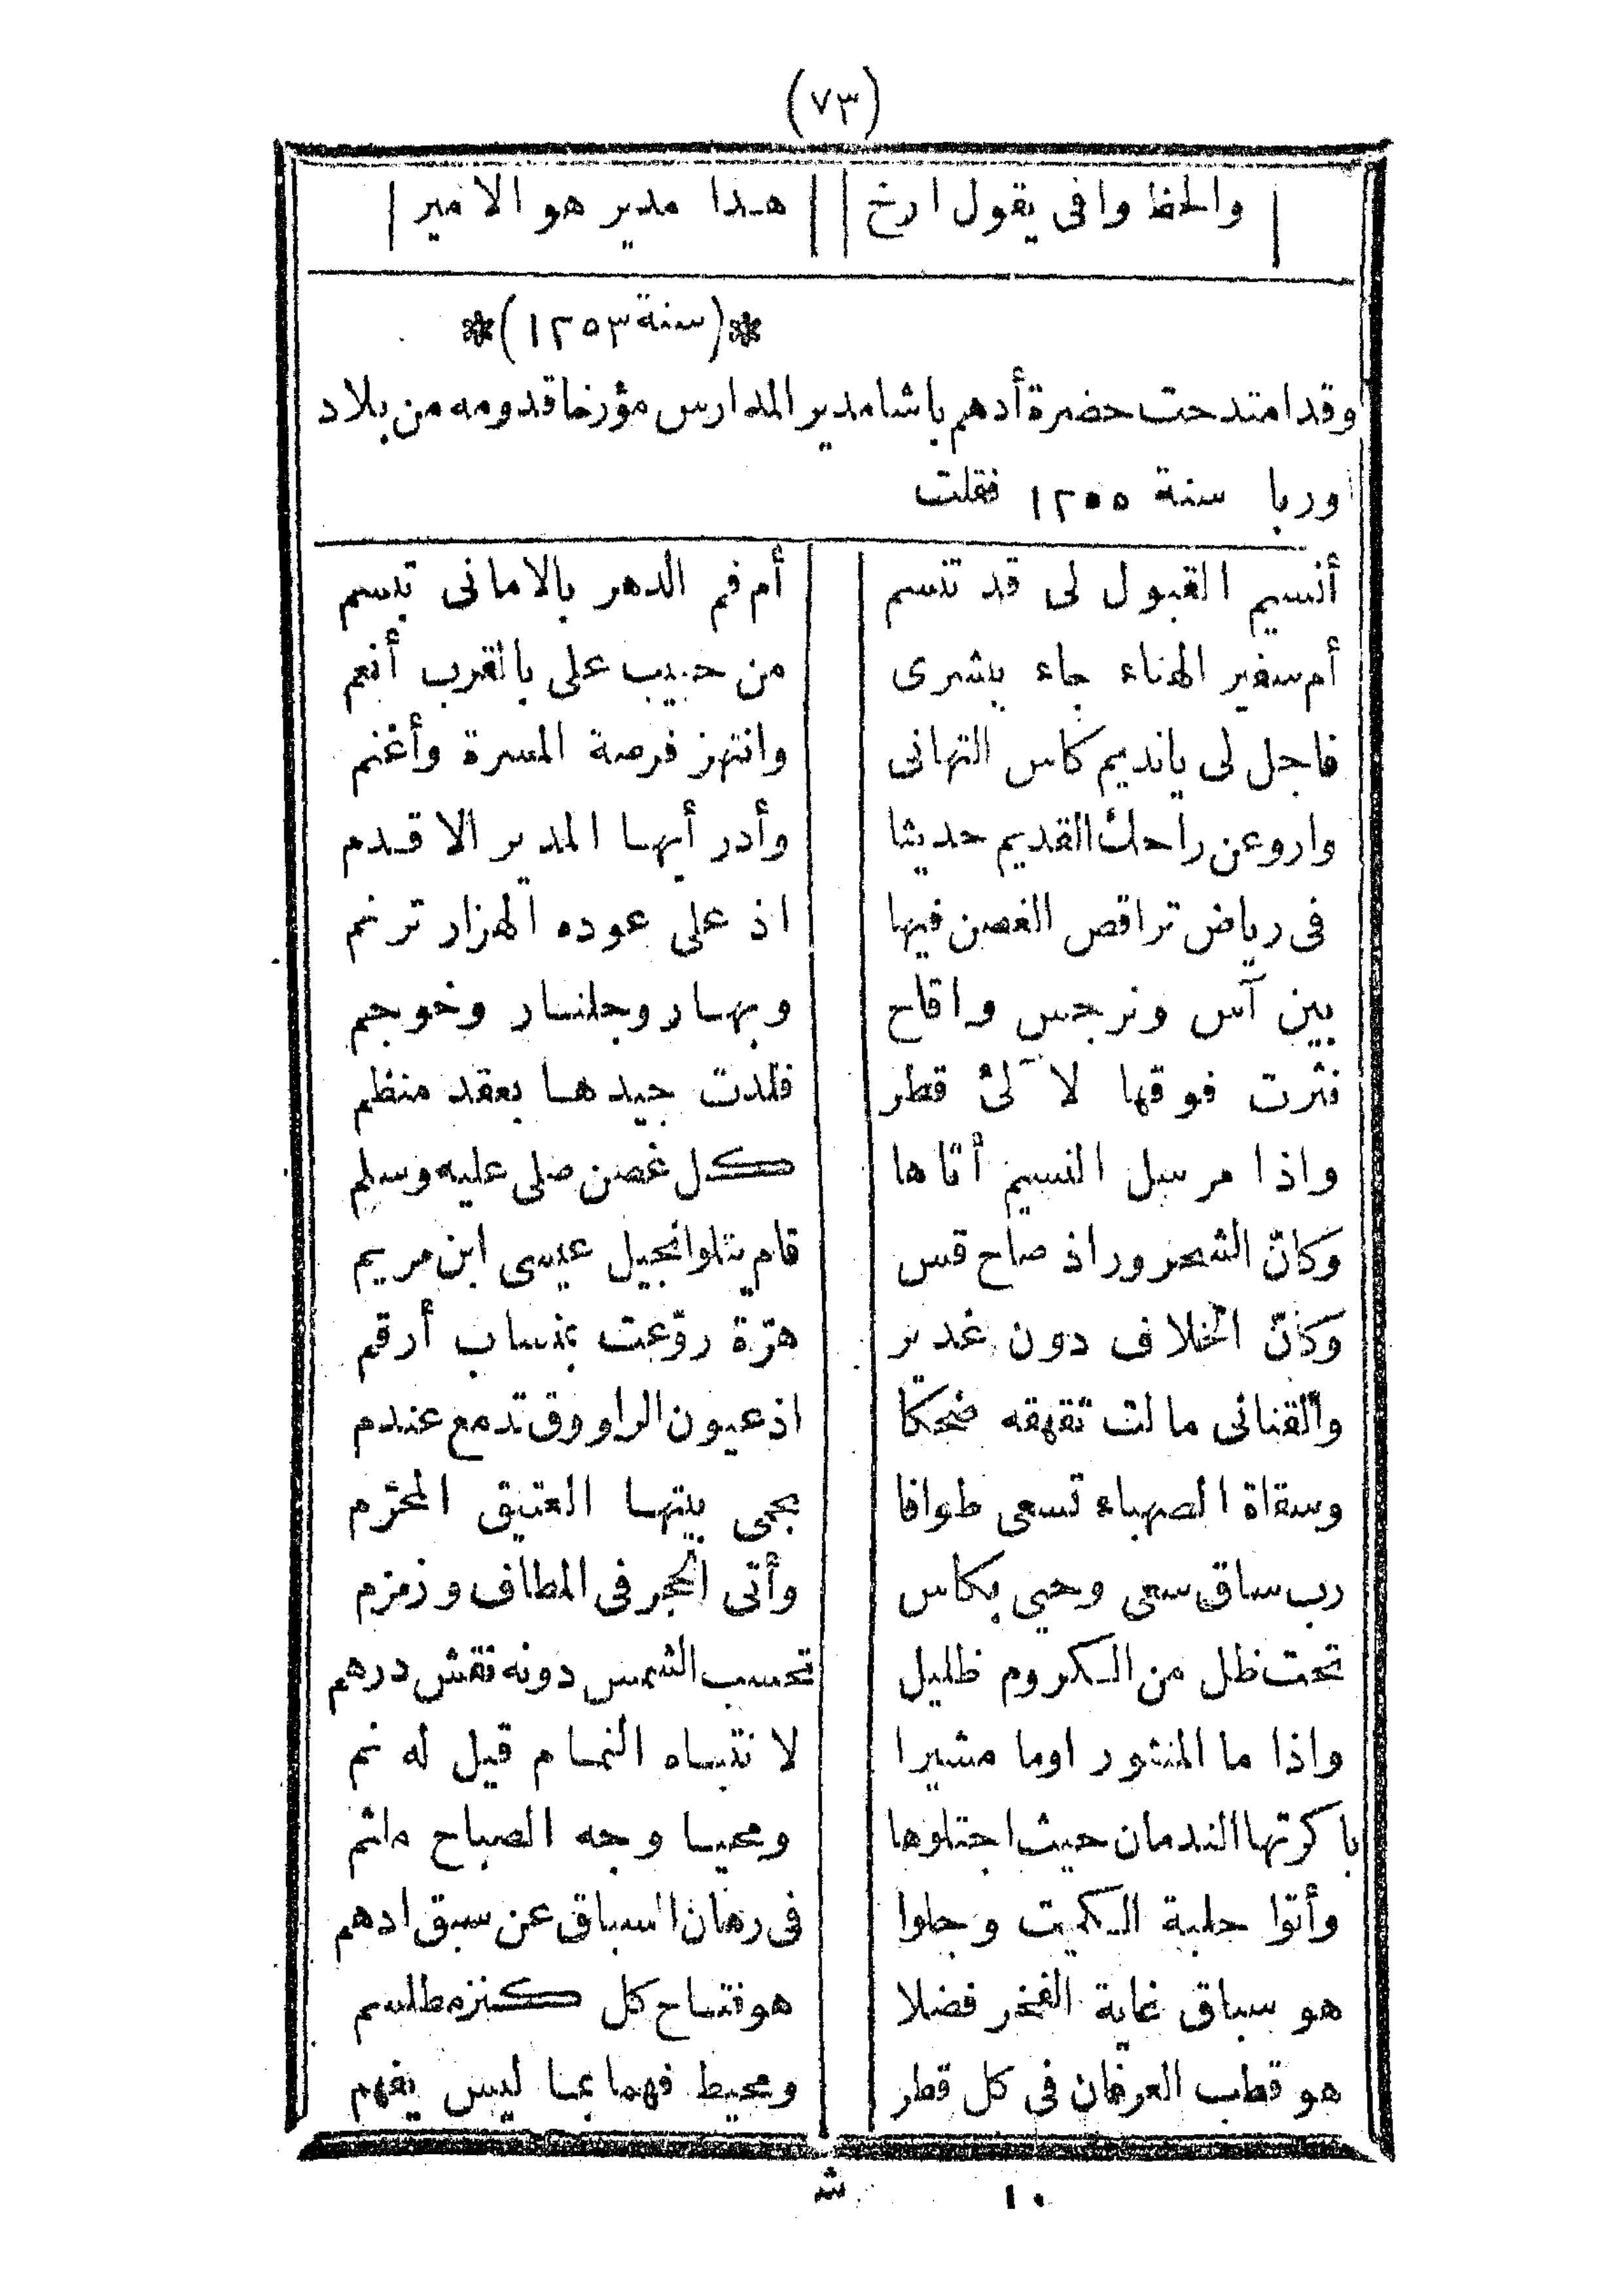 (٧٣)
والحظ وافى يقول ارخ هذا مدير هو الامير
*(سنة ١٢٥٣)*
وقد امتدحت حضرة أدهم باشا مدير المدارس مؤرخا قدومه من بلاد
اوربا سنة ١٢٥٥ فقلت
أنسيم القبول لى قد تنسم أم فم الدهر بالامانى تبسم
أم سفير الهناء جاء ببشرى من حبيب على بالقرب أنعم
فاجل لى يانديم كاس التهانى وانتهز فرصة المسرة وأغنم
واروعن راحك القديم حديثا وأدر أيها المدير الاقدم
فى رياض تراقص الغصن فيها اذ على عوده الهزار ترنم
بين آس ونرجس واقاح وبهار وجلنار وخوجم
نثرت فوقها لآلئ قطر قلدت جيدها بعقد منظم
واذا مرسل النسيم أتاها كل غصن صلى عليه وسلم
وكانّ الشحرور اذ صاح قس قام يتلوا نجيل عيسى ابن مريم
وكانّ الخلاف دون غدير هرّة روّعت بمنساب أرقم
والقنانى مالت تقهقه ضحكا اذ عيون الراووق تدمع عندم
وسقاة الصهباء تسعى طوافا بحمى بيتها العتيق المحرّم
رب ساق سعى وحيي بكاس وأتى الحجر فى المطاف وزمزم
تحت ظل من الكروم ظليل تحسب الشمس دونه نقش درهم
واذا ما المنثور اوما مشيرا لانتباه النمام قيل له نم
باكرتها الندمان حيث اجتلوها ومحيا وجه الصباح ملثم
وأتوا حلبة الكميت وجلوا فى رهان السباق عن سبق ادهم
هو سباق غاية الفخر فضلا هو فتاح كل كنز مطلسم
هو قطب العرفان فى كل قطر ومحيط فهما بما ليس يفهم
١٠ ش